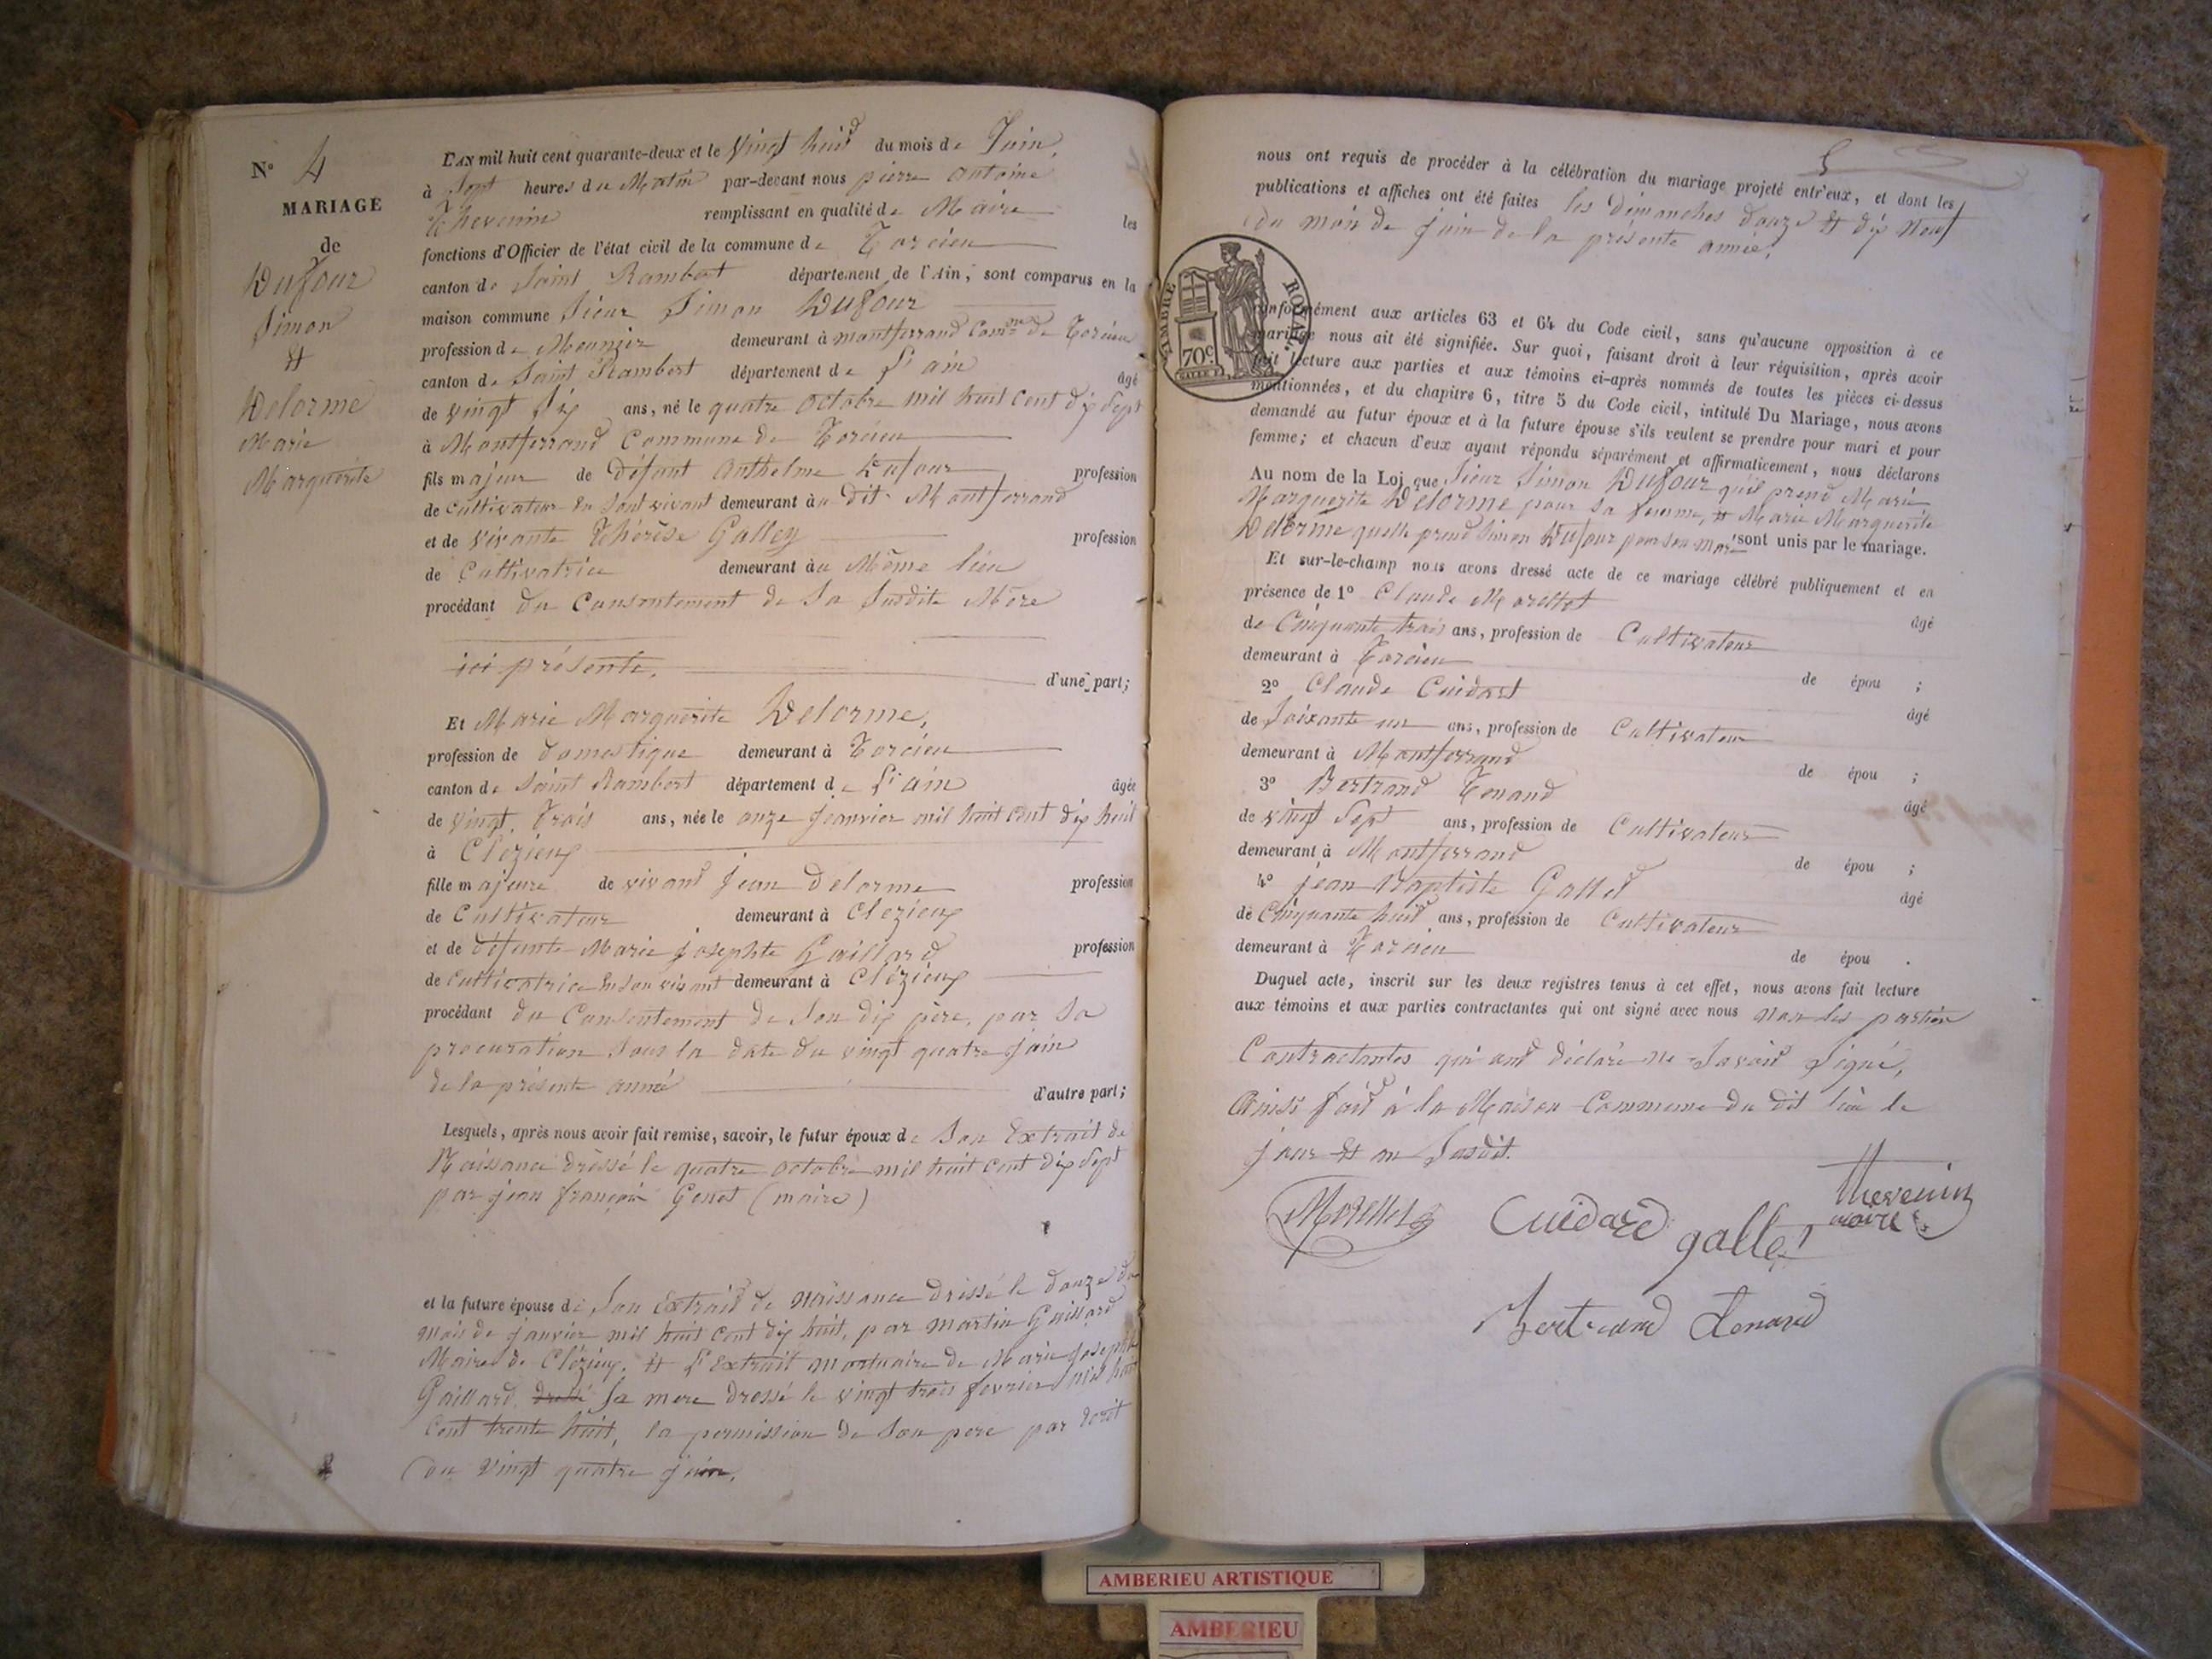 N° 4
MARIAGE
de
Dufour
Simon
&
Delorme
Marie
Marguerite
L'AN mil huit cent quarante-deux et le vingt huit du mois de Juin,
à Sept heures du Matin par-devant nous pierre antoine
Thevenin remplissant en qualité de Maire les
fonctions d'Officier de l'état civil de la commune de Torcieu
canton de Saint Rambert département de l'Ain, sont comparus en la
maison commune Sieur Simon Dufour
profession de Meunier demeurant à montferrand Comne de Torcieu
canton de Saint Rambert département de L'ain âgé
de vingt Six ans, né le quatre octobre mil huit cent dix Sept
à Montferrand Commune de Torcieu
fils majeur de défont anthelme Dufour profession
de Cultivateur en Son vivant demeurant au dit Montferrand
et de vivante Thérèse Galley profession
de Cultivatrice demeurant au Même lieu
procédant du Consentement de Sa Susdite Mère
ici présente, d'une part;
Et Marie Marguerite Delorme,
profession de domestique demeurant à Torcieu
canton de Saint Rambert département de L'ain âgée
de vingt Trois ans, née le onze Janvier mil huit cent dix huit
à Clézieux
fille majeure de vivant Jean Delorme profession
de Cultivateur demeurant à Clezieux
et de défunte Marie Josephte Gaillard profession
de Cultivatrice En Son vivant demeurant à Clézieux
procédant du Consentement de Son dix père, par Sa
procuration Sous la date du vingt quatre juin
de la présente année d'autre part;
Lesquels, après nous avoir fait remise, savoir, le futur époux de Son Extrait de
Naissance dressé le quatre octobre mil huit cent dix Sept
par jean françois Genet (maire)
et la future épouse de Son extrait de naissance dressé le douze du
mois de janvier mil huit cent dix huit, par martin Gaillard
Maire de Clézieux. & L'Extrait mortuaire de Marie Josephte
Gaillard, dressé Sa mere dressé le vingt trois fevrier mil huit
Cent trente huit, la permission de Son pere par écrit
du vingt quatre juin.
5
nous ont requis de procéder à la célébration du mariage projeté entr'eux, et dont les
publications et affiches ont été faites les dimanches douze & dix Neuf
du mois de juin de la présente année,
TIMBRE ROYAL.
70c
conformément aux articles 63 et 64 du Code civil, sans qu'aucune opposition à ce
mariage nous ait été signifiée. Sur quoi, faisant droit à leur réquisition, après avoir
fait lecture aux parties et aux témoins ci-après nommés de toutes les pièces ci-dessus
mentionnées, et du chapitre 6, titre 5 du Code civil, intitulé Du Mariage, nous avons
demandé au futur époux et à la future épouse s'ils veulent se prendre pour mari et pour
femme; et chacun d'eux ayant répondu séparément et affirmativement, nous déclarons
Au nom de la Loi que Sieur Simon Dufour qu'il prend Marie
Marguerite Delorme pour Sa femme, & Marie Marguerite
Delorme quelle prend Simon Dufour pour Son mari sont unis par le mariage.
Et sur-le-champ nous avons dressé acte de ce mariage célébré publiquement et en
présence de 1° Claude Morettet âgé
de Cinquante trois ans, profession de Cultivateur
demeurant à Torcieu de épou ;
2° Claude Cuidard âgé
de Soixante un ans, profession de Cultivateur
demeurant à Montferrand de épou ;
3° Bertrand Tenand âgé
de vingt Sept ans, profession de Cultivateur
demeurant à Montferrand de épou ;
4° jean Baptiste Gallet âgé
de Cinquante huit ans, profession de Cultivateur
demeurant à Torcieu de épou .
Duquel acte, inscrit sur les deux registres tenus à cet effet, nous avons fait lecture
aux témoins et aux parties contractantes qui ont signé avec nous non les parties
Contractantes qui ont déclaré ne Savoir Signé,
Ainsi fait à la Maison Commune du dit lieu le
jour & an Susdit.
Cuidard
gallet
Thevenin
maire
Bertrand Tenand
AMBERIEU ARTISTIQUE
AMBERIEU